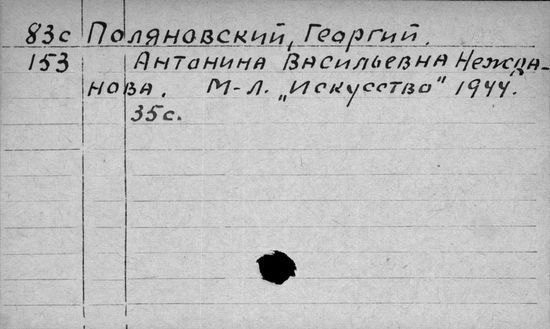 83с Поляновский, Георгий.
153 Антонина Васильевна Нежда-
нова. М-Л. „Искусство" 1944.
35с.